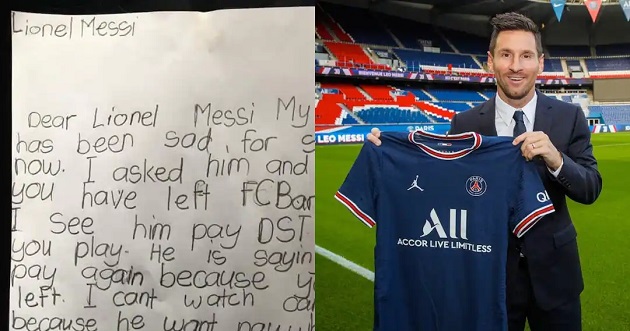 Lionel Messi
Dear Lionel Messi My
has been sad, for
now. I asked him and
you have left FCBar
I see him pay DST
you play. He is sayin
pay again because y
left. I cant watch
because he want pay
BIENVENUE LEO MESSI
LEO MESSI
PARIS
PARIS
All
ACCOR LIVE LIMITLESS